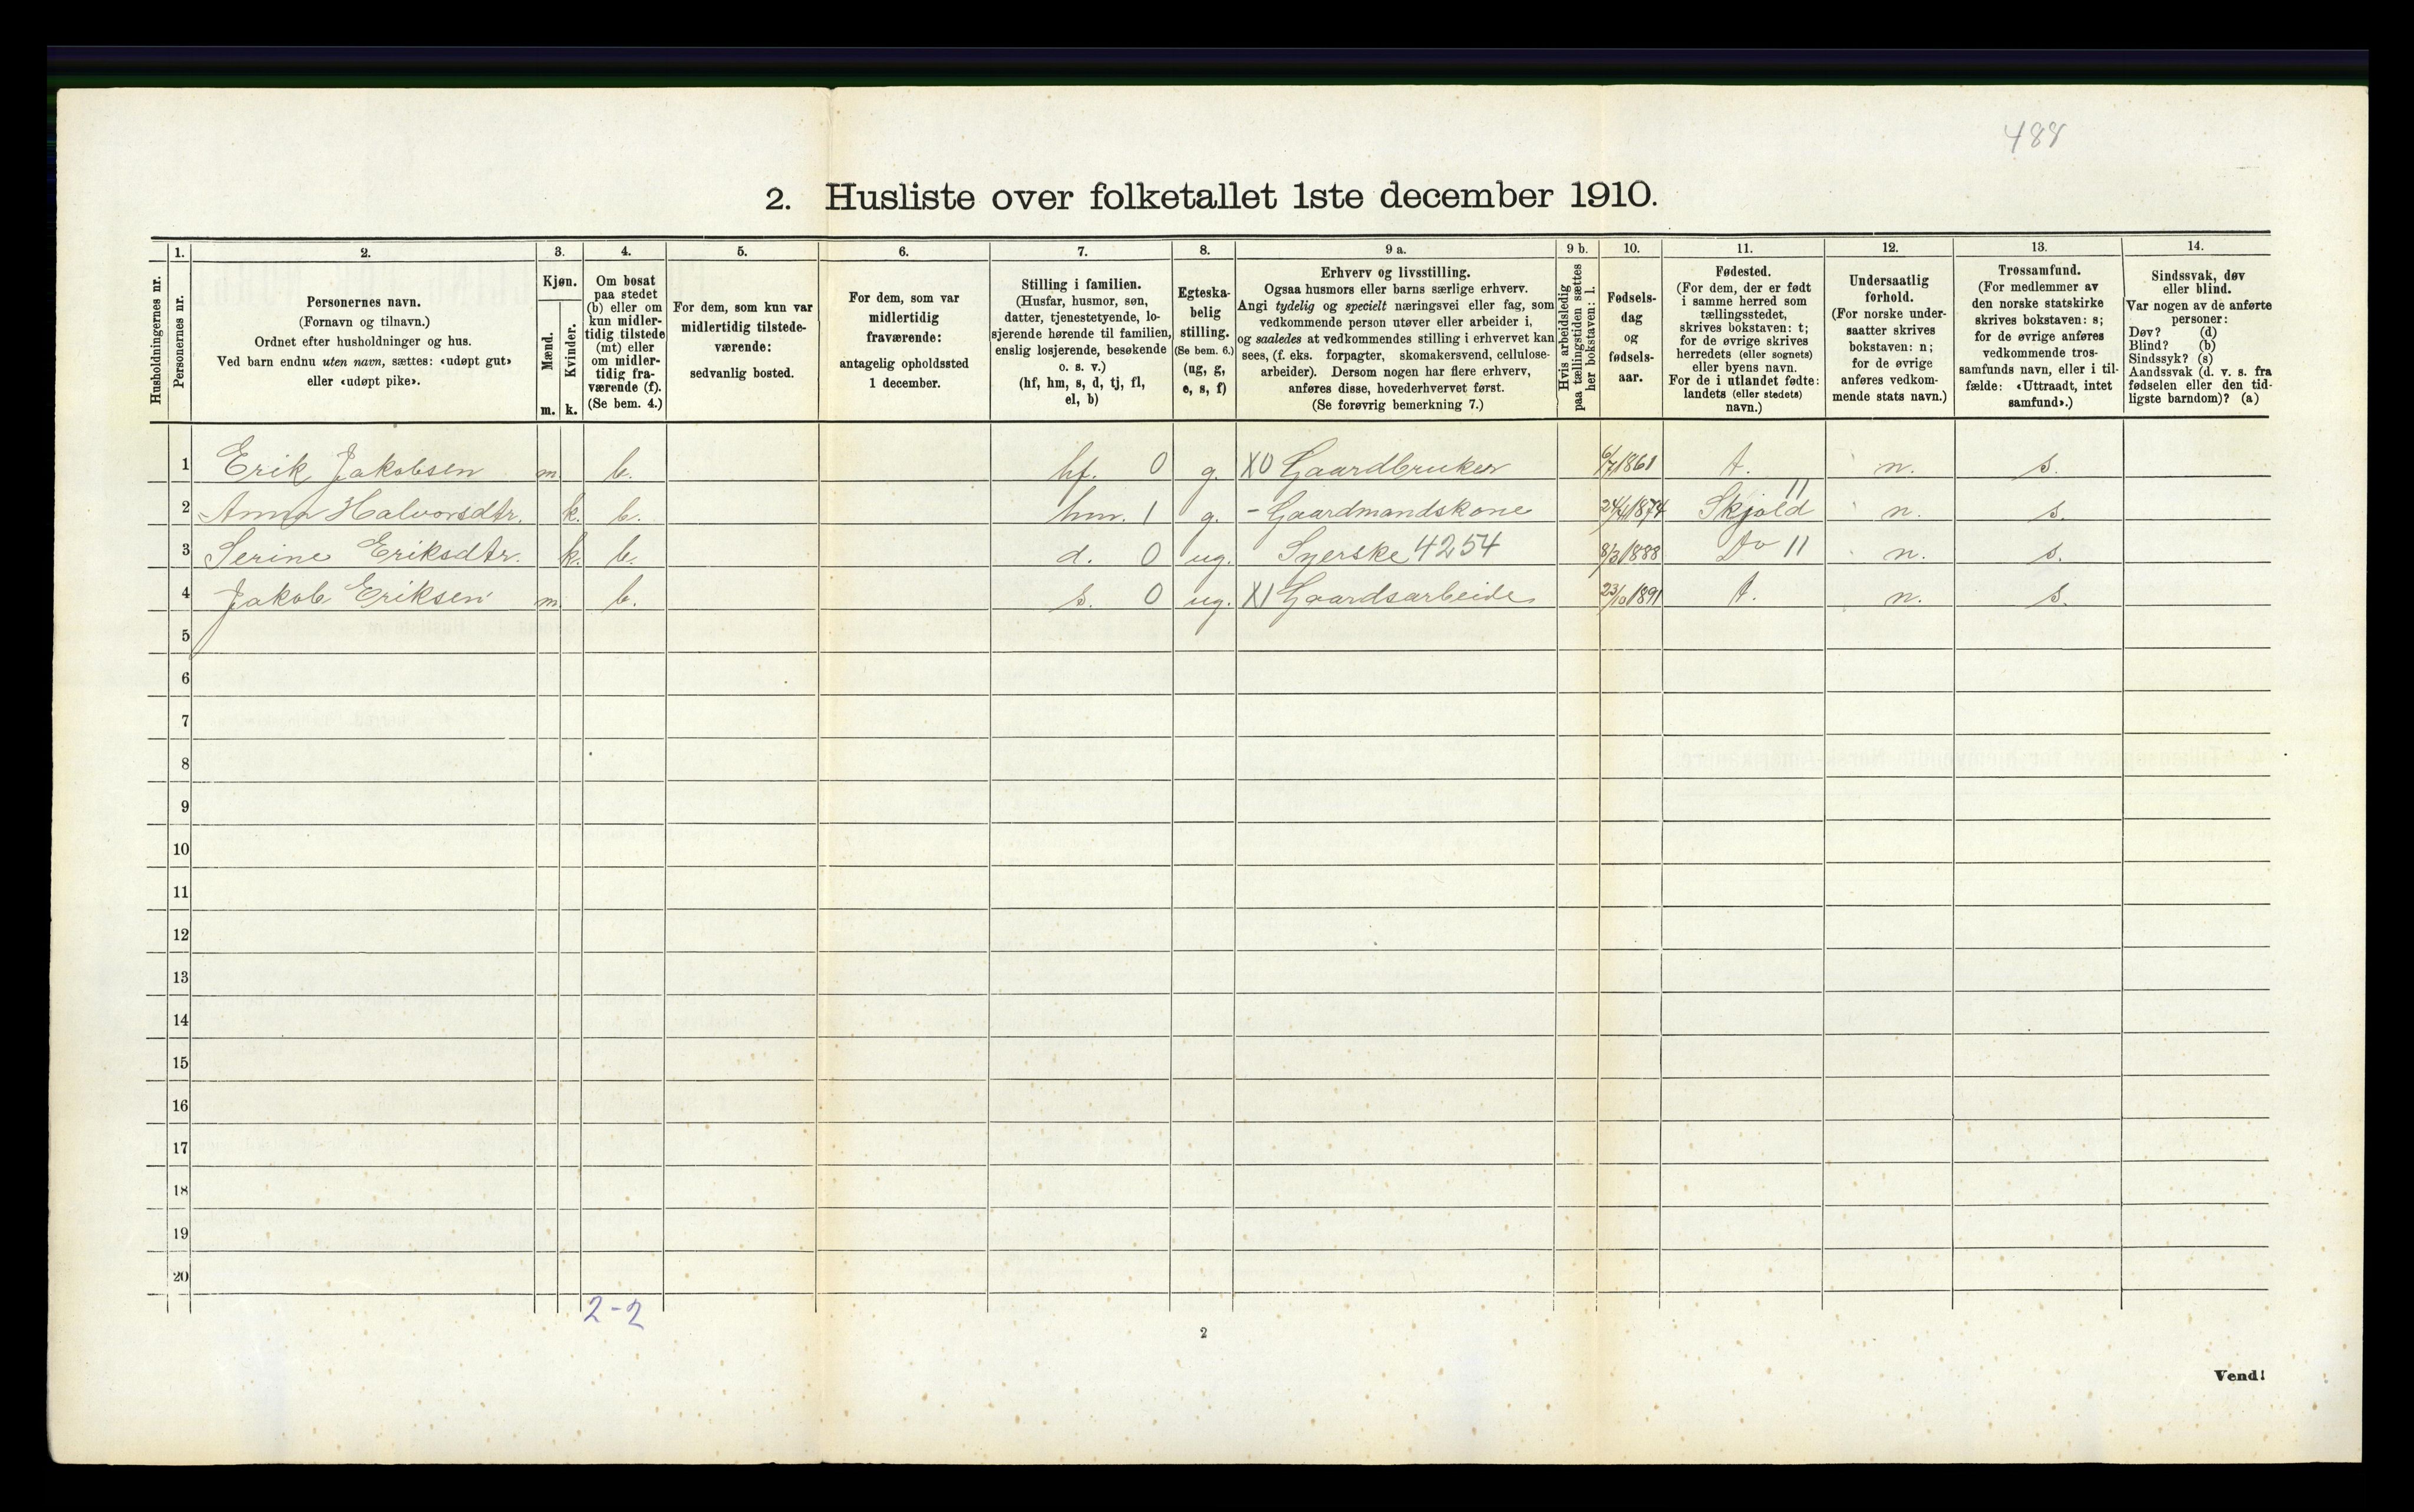 488
2. Husliste over folketallet 1ste december 1910.
Husholdningernes nr.
1.
Personernes nr.
2.
Personernes navn.
(Fornavn og tilnavn.)
Ordnet efter husholdninger og hus.
Ved barn endnu uten navn, sættes: «udøpt gut»
eller «udøpt pike».
3.
Kjøn.
Mænd.
Kvinder.
m. k.
4.
Om bosat
paa stedet
(b) eller om
kun midler-
tidig tilstede
(mt) eller
om midler-
tidig fra-
værende (f).
(Se bem. 4.)
5.
For dem, som kun var
midlertidig tilstede-
værende:
sedvanlig bosted.
6.
For dem, som var
midlertidig
fraværende:
antagelig opholdssted
1 december.
7.
Stilling i familien.
(Husfar, husmor, søn,
datter, tjenestetyende, lo-
sjerende hørende til familien,
enslig losjerende, besøkende
o. s. v.)
(hf, hm, s, d, tj, fl,
el, b)
8.
Egteska-
belig
stilling.
(Se bem. 6.)
(ug, g,
e, s, f)
9 a.
Erhverv og livsstilling.
Ogsaa husmors eller barns særlige erhverv.
Angi tydelig og specielt næringsvei eller fag, som
vedkommende person utøver eller arbeider i,
og saaledes at vedkommendes stilling i erhvervet kan
sees, (f. eks. forpagter, skomakersvend, cellulose-
arbeider). Dersom nogen har flere erhverv,
anføres disse, hovederhvervet først.
(Se forøvrig bemerkning 7.)
9 b.
Hvis arbeidsledig
paa tællingstiden sættes
her bokstaven: l.
10.
Fødsels-
dag
og
fødsels-
aar.
11.
Fødested.
(For dem, der er født
i samme herred som
tællingsstedet,
skrives bokstaven: t;
for de øvrige skrives
herredets (eller sognets)
eller byens navn.
For de i utlandet fødte:
landets (eller stedets)
navn.)
12.
Undersaatlig
forhold.
(For norske under-
saatter skrives
bokstaven: n;
for de øvrige
anføres vedkom-
mende stats navn.)
13.
Trossamfund.
(For medlemmer av
den norske statskirke
skrives bokstaven: s;
for de øvrige anføres
vedkommende tros-
samfunds navn, eller i til-
fælde: «Uttraadt, intet
samfund».)
14.
Sindssvak, døv
eller blind.
Var nogen av de anførte
personer:
Døv? (d)
Blind? (b)
Sindssyk? (s)
Aandssvak (d. v. s. fra
fødselen eller den tid-
ligste barndom)? (a)
1 Erik Jakobsen m. b. hf. 0 g. X0 Gaardbruker 6/7 1861 t. n. s.
2 Anna Halvorsdtr. k. b. hm. 1 g. - Gaardmandskone 24/4 1874 Skjold 11 n. s.
3 Serine Eriksdtr. k. b. d. 0 ug. Syerske 4254 8/3 1888 Do 11 n. s.
4 Jakob Eriksen m. b. s. 0 ug. X1 Gaardsarbeide 23/10 1891 t. n. s.
5
6
7
8
9
10
11
12
13
14
15
16
17
18
19
20
2-2
2
Vend!